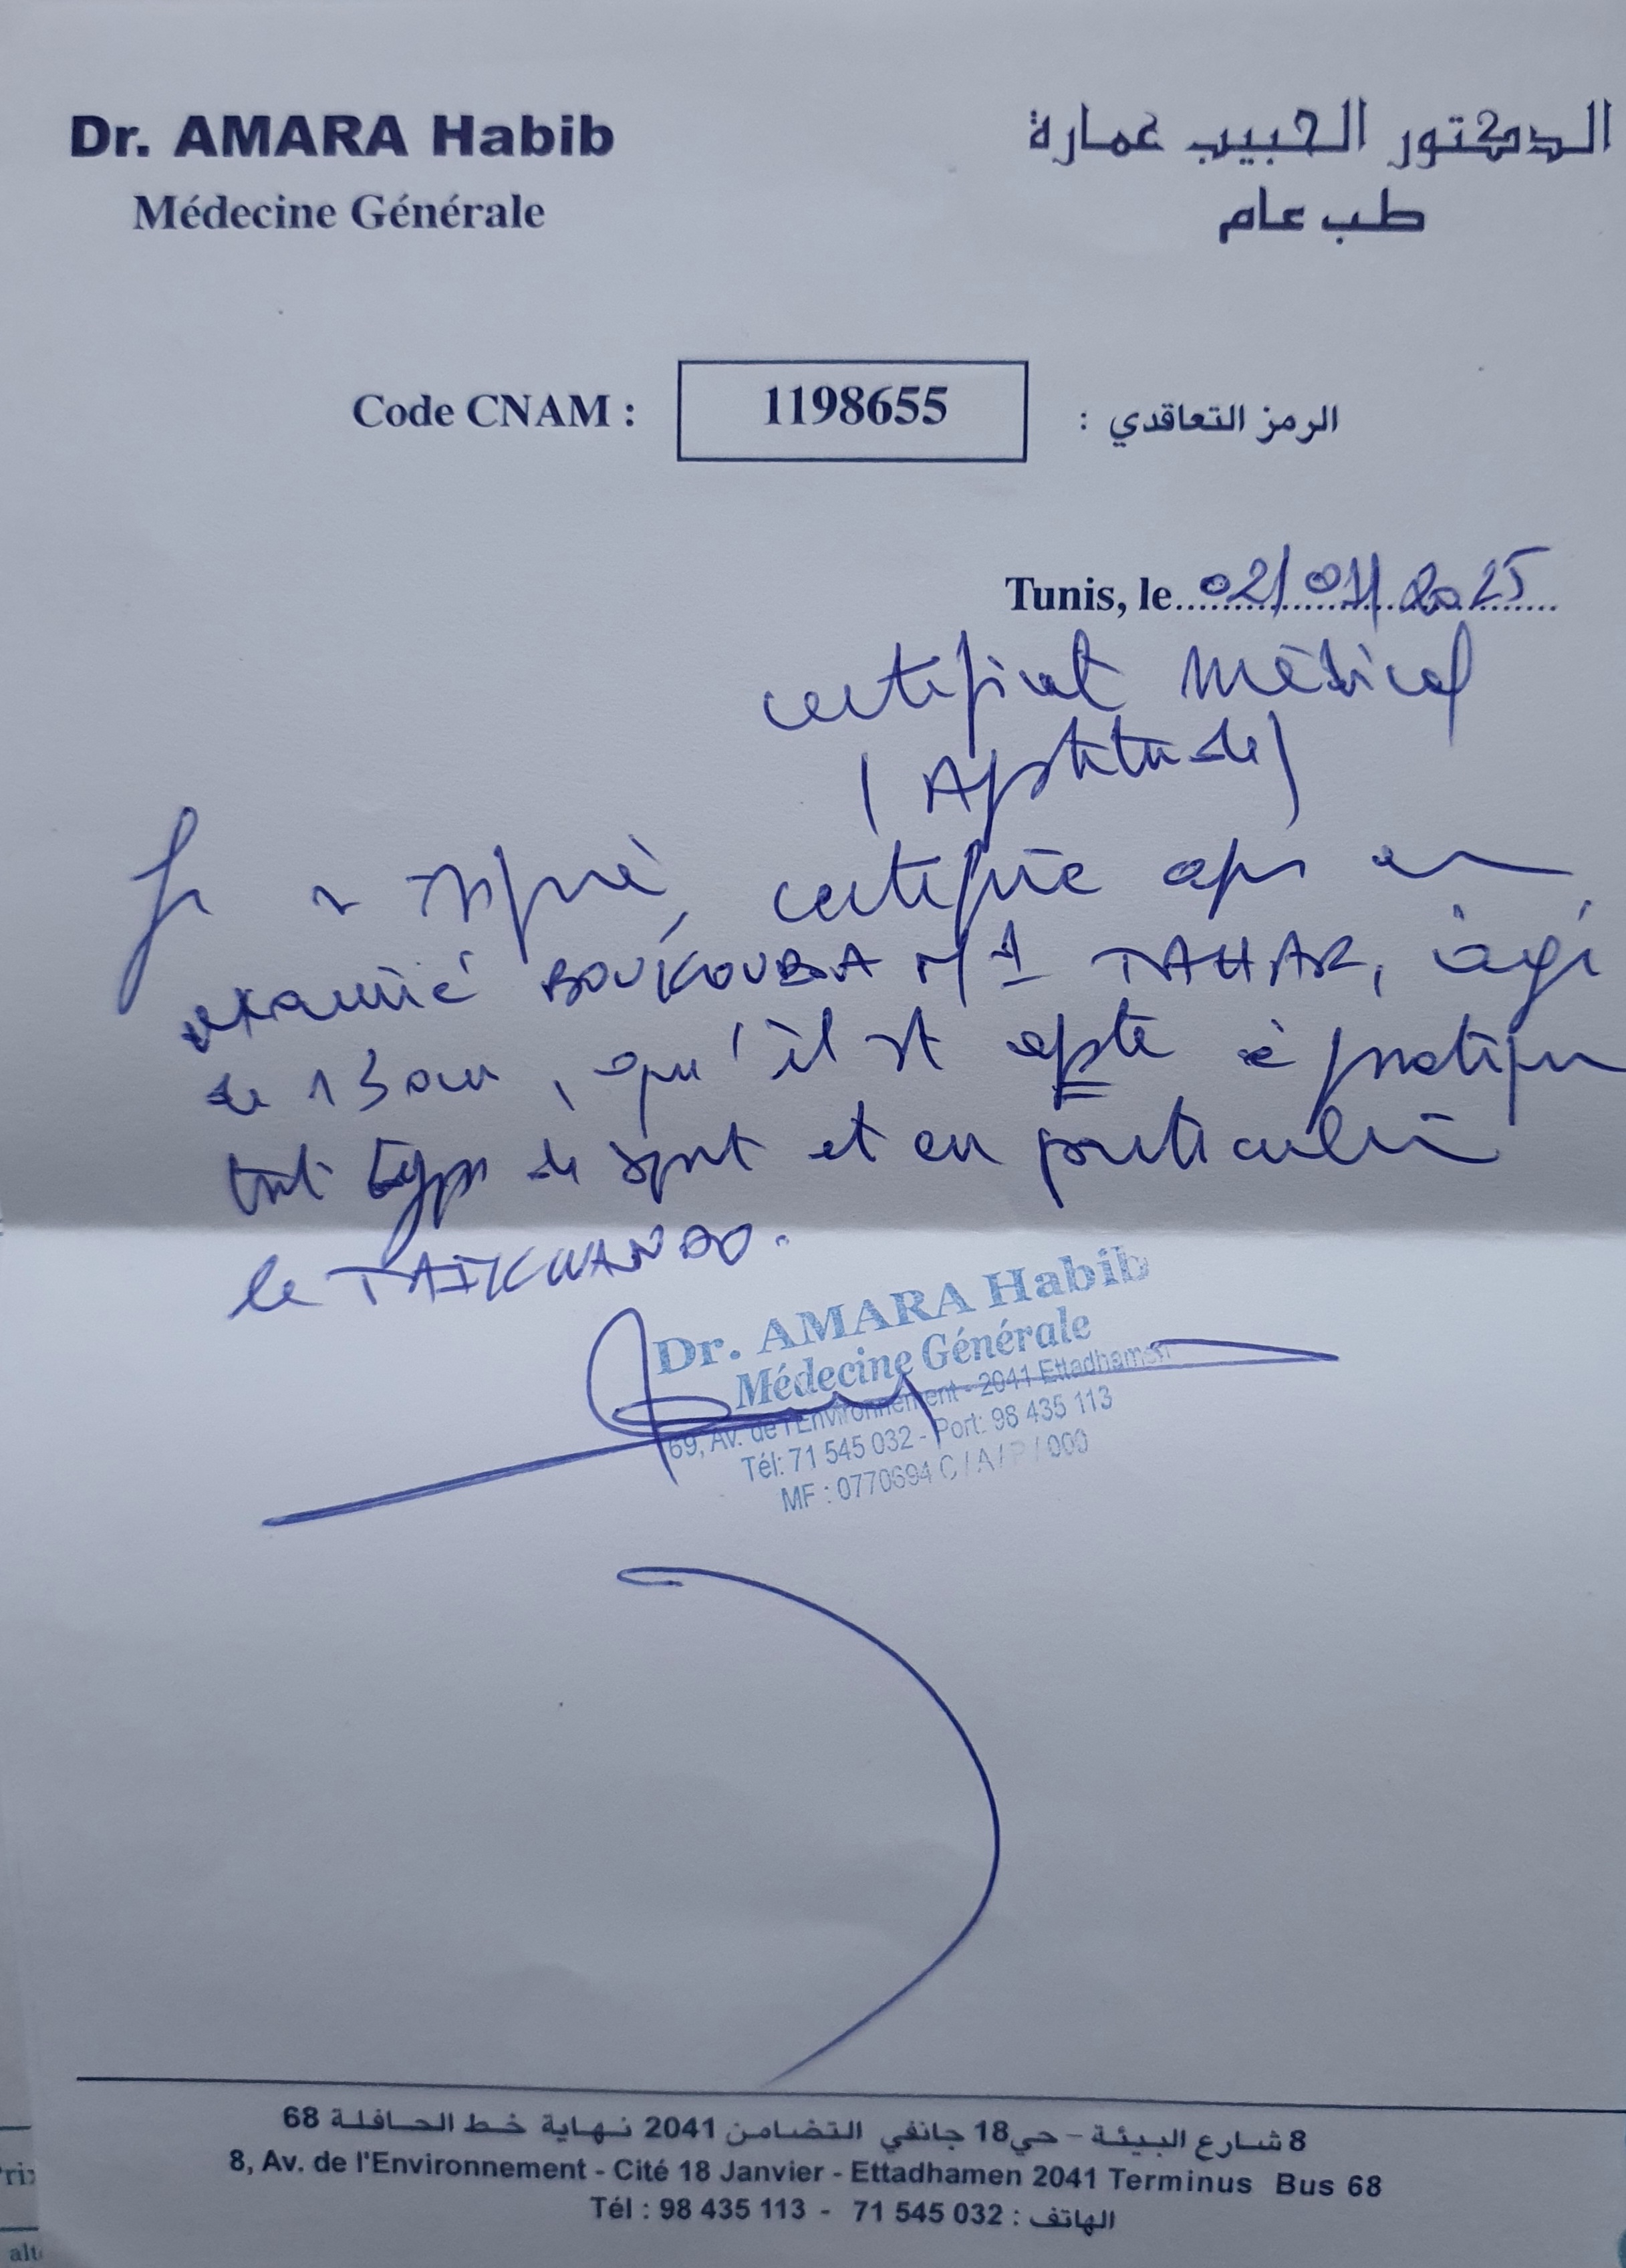 Dr. AMARA Habib
Médecine Générale
الدكتور الحبيب عمارة
طب عام
Code CNAM : 1198655 الرمز التعاقدي :
Tunis, le 02/01/2025
certificat Médical
(Aptitude)
Je signé, certifie
examiné BOUKOUBA TAHAR, âgé
de 13 ans, qu'il est apte à pratiquer
tout type de sport et en particulier
le TAIKWANDO.
Dr. AMARA Habib
Médecine Générale
69, Av. de l'Environnement - 2041 Ettadhamen
Tél: 71 545 032 - Port: 98 435 113
MF : 0770694 C / A / P / 000
8 شارع البيئة - حي 18 جانفي التضامن 2041 نهاية خط الحافلة 68
8, Av. de l'Environnement - Cité 18 Janvier - Ettadhamen 2041 Terminus Bus 68
Tél : 98 435 113 - 71 545 032 : الهاتف